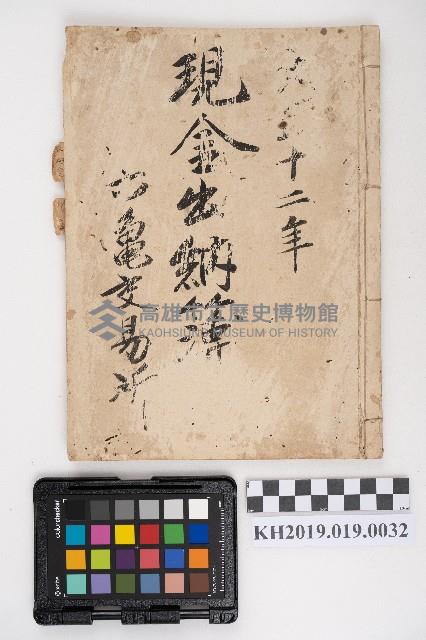 十二年
現金出納簿
六龜交易所
高雄市立歷史博物館
KAOHSIUNG MUSEUM OF HISTORY
colorchecker
KH2019.019.0032